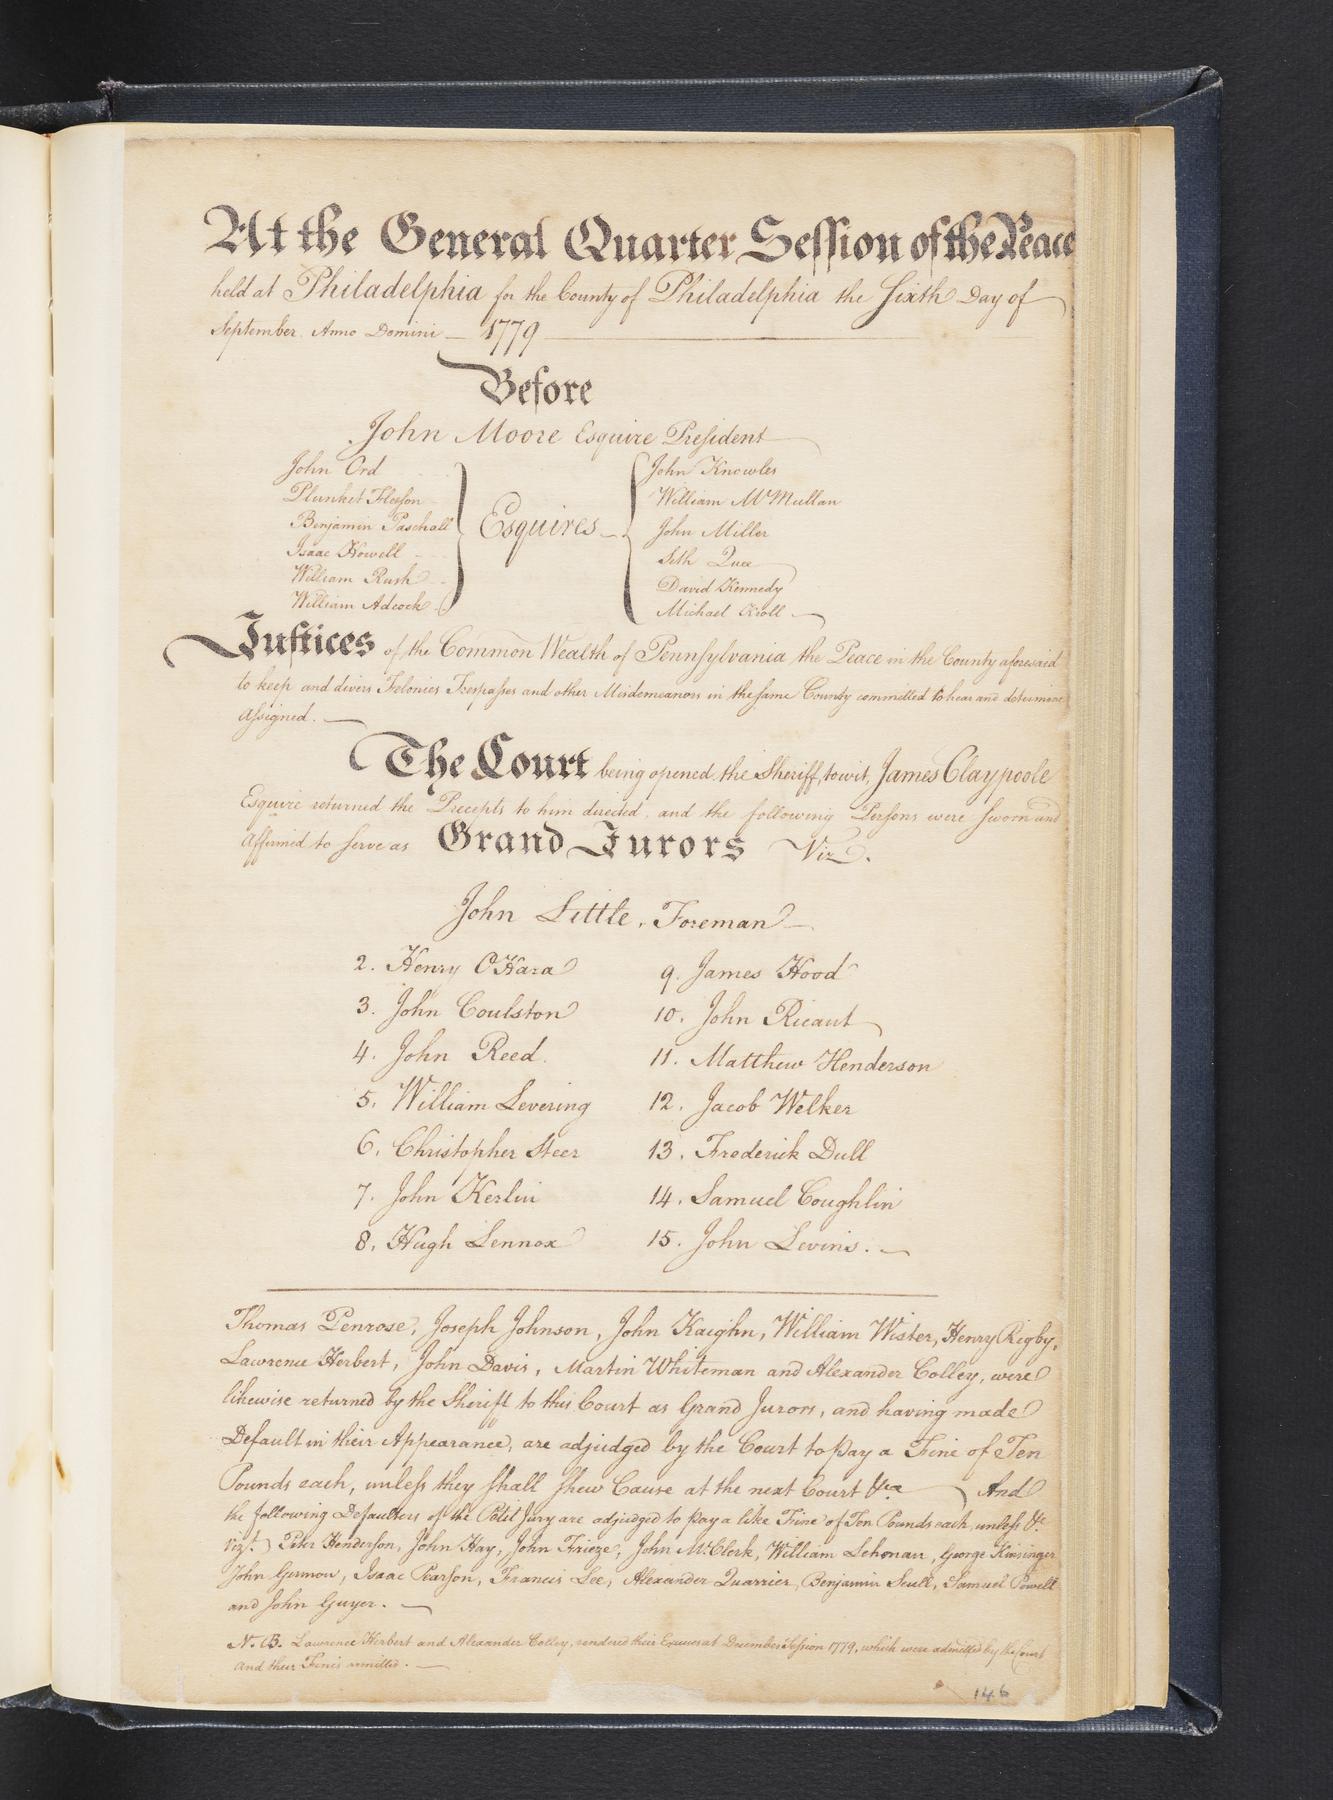 At the General Quarter Session of the Peace
held at Philadelphia for the County of Philadelphia the Sixth Day of
September. Anno Domini — 1779
Before
John Moore Esquire President
John Ord
Plunket Fleeson
Benjamin Paschall
Isaac Howell
William Rush
William Adcock
Esquires
John Knowles
William McMullan
John Miller
Seth Quee
David Kennedy
Michael Croll
Justices of the Common Wealth of Pennsylvania the Peace in the County aforesaid
to keep and divers Felonies Trespasses and other Misdemeanors in the same County committed to hear and determine
Assigned.
The Court being opened the Sheriff, towit, James Claypoole
Esquire returned the Precepts to him directed, and the following Persons were sworn and
Affirmed to serve as Grand Jurors Viz.
John Little, Foreman
2. Henry O'Hara
3. John Coulston
4. John Reed.
5. William Levering
6. Christopher Steer
7. John Kerlin
8. Hugh Lennox
9. James Hood
10. John Ricaut
11. Matthew Henderson
12. Jacob Welker
13. Frederick Dull
14. Samuel Coughlin
15. John Levins.
Thomas Penrose, Joseph Johnson, John Kaighn, William Wister, Henry Rigby,
Lawrence Herbert, John Davis, Martin Whiteman and Alexander Colley, were
likewise returned by the Sheriff to this Court as Grand Jurors, and having made
Default in their Appearance, are adjudged by the Court to pay a Fine of Ten
Pounds each, unless they shall shew Cause at the next Court &ca And
the following Defaulters of the Petit Jury are adjudged to pay a like Fine of Ten Pounds each, unless &c.
vizt. Peter Henderson, John Hay, John Frieze, John McClerk, William Lehonan, George Kinsinger
John Germon, Isaac Pearson, Francis Lee, Alexander Quarrier, Benjamin Scull, Samuel Powell
and John Guyer.
N.B. Lawrence Herbert and Alexander Colley, rendered their Excuses at December Session 1779, which were admitted by the Court
and their Fines remitted.
146